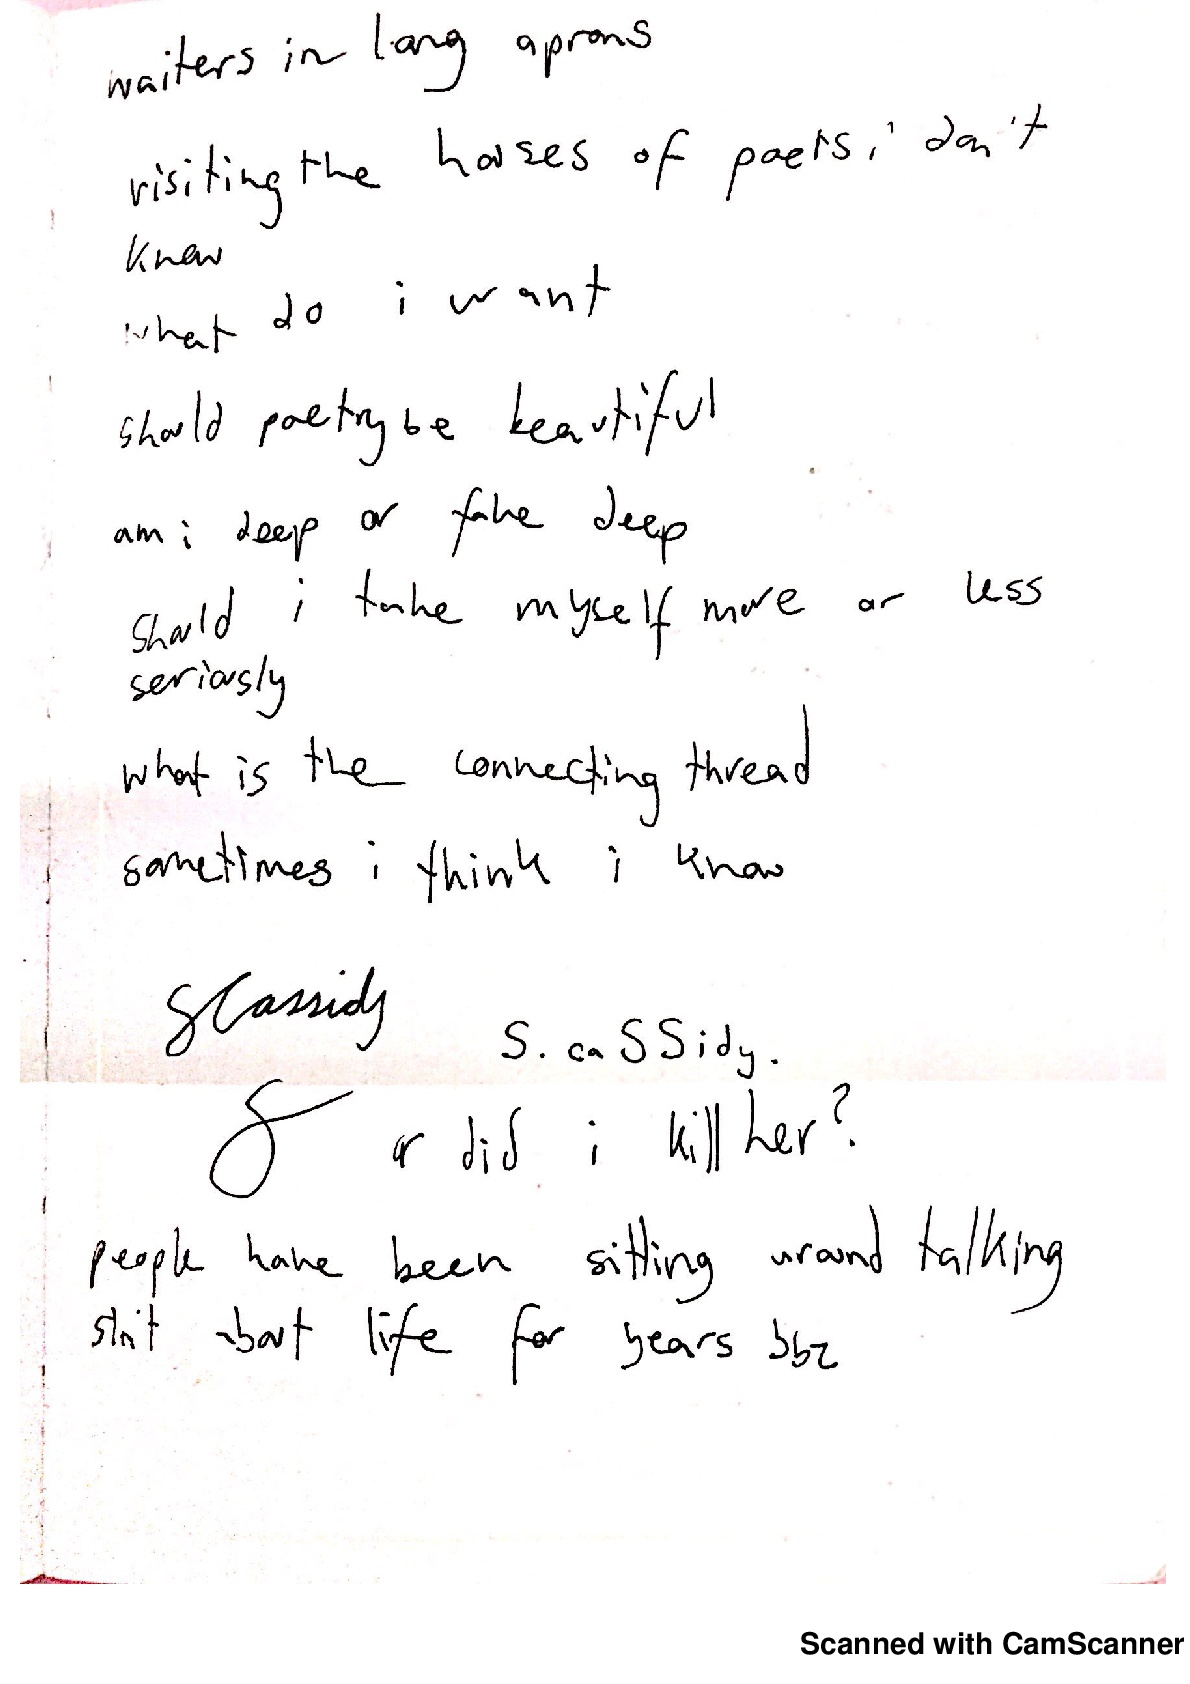 waiters in long aprons
visiting the houses of poets, i don't
know
what do i want
should poetry be beautiful
am i deep or fake deep
should i take myself more or less
seriously
what is the connecting thread
sometimes i think i know
SCassidy
S. caSSidy.
S or did i kill her?
people have been sitting around talking
shit about life for years bbz
Scanned with CamScanner